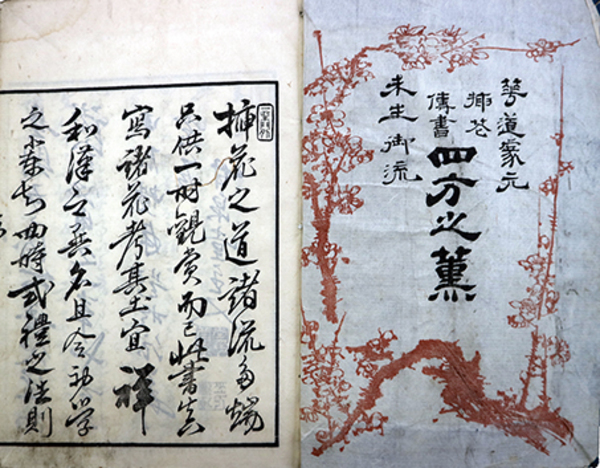 華道家元
挿花
傳書
四方之薫
未生御流
挿花之道諸流多端
只供一时觀賞而已此書真
寫諸花考其土宜祥
和漢之異名且令初学
之輩知四時式禮之法則